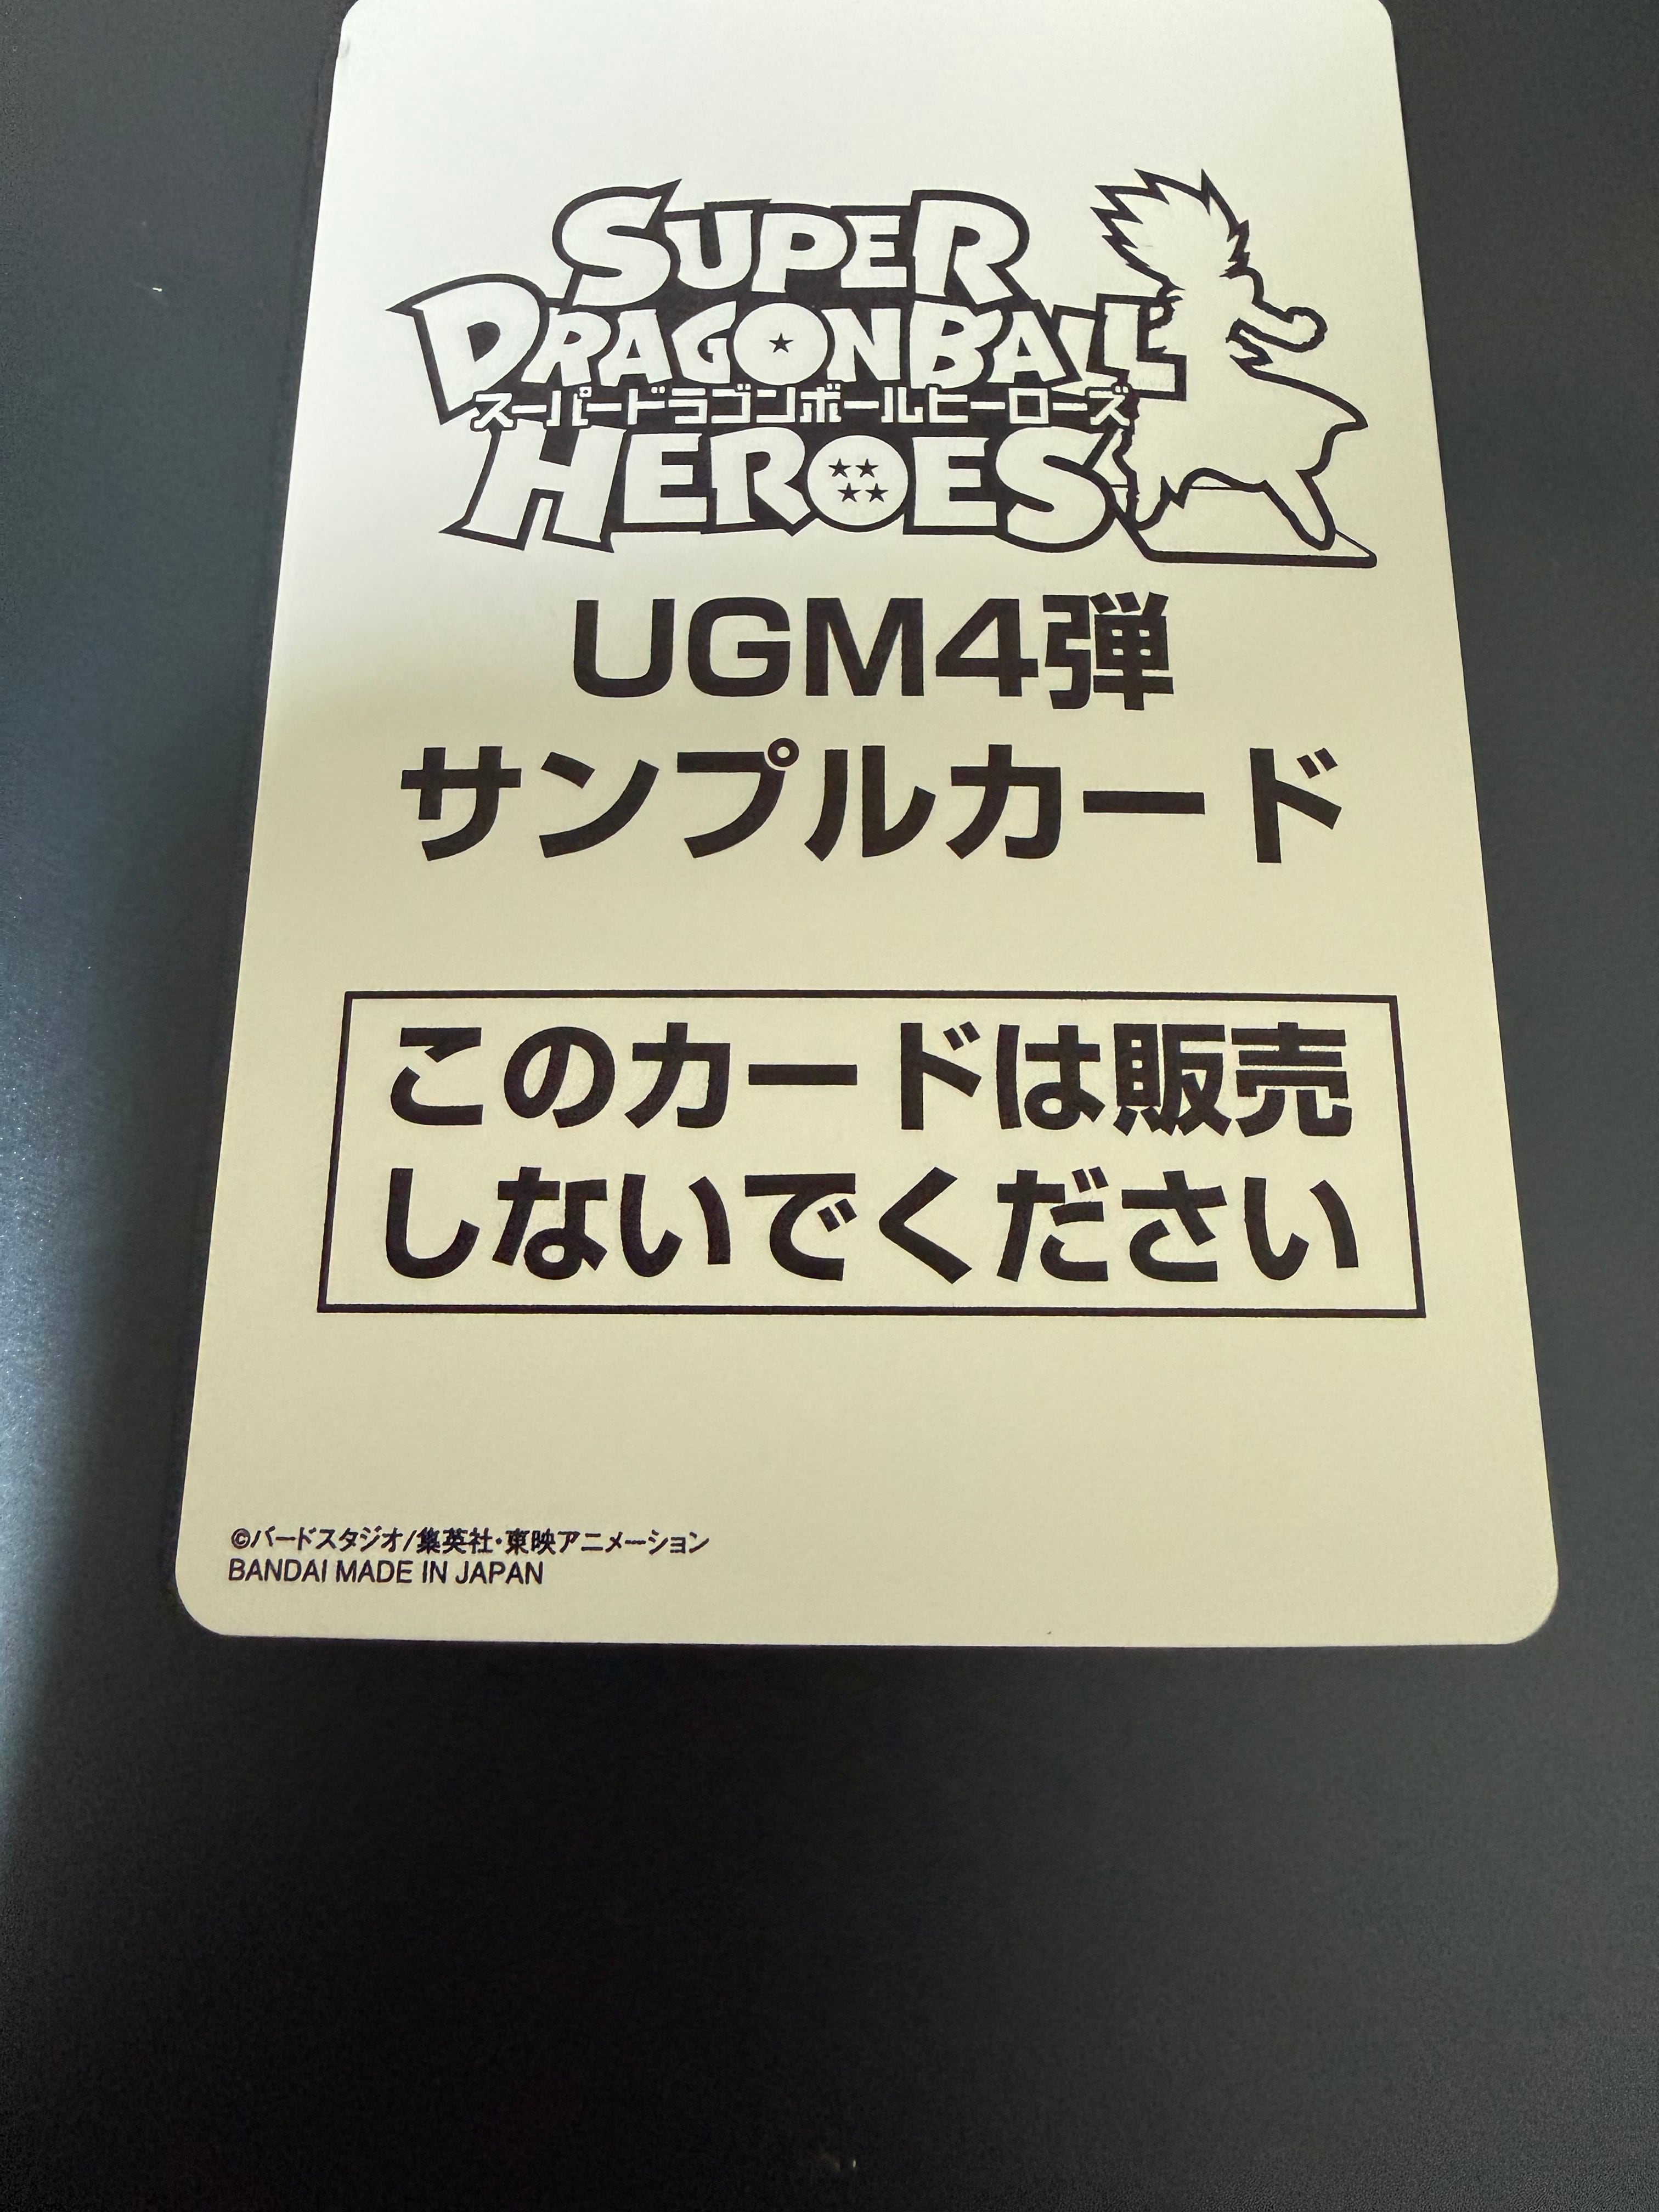 SUPER
DRAGONBALL
スーパードラゴンボールヒーローズ
HEROES
UGM4弾
サンプルカード
このカードは販売
しないでください
©バードスタジオ/集英社・東映アニメーション
BANDAI MADE IN JAPAN